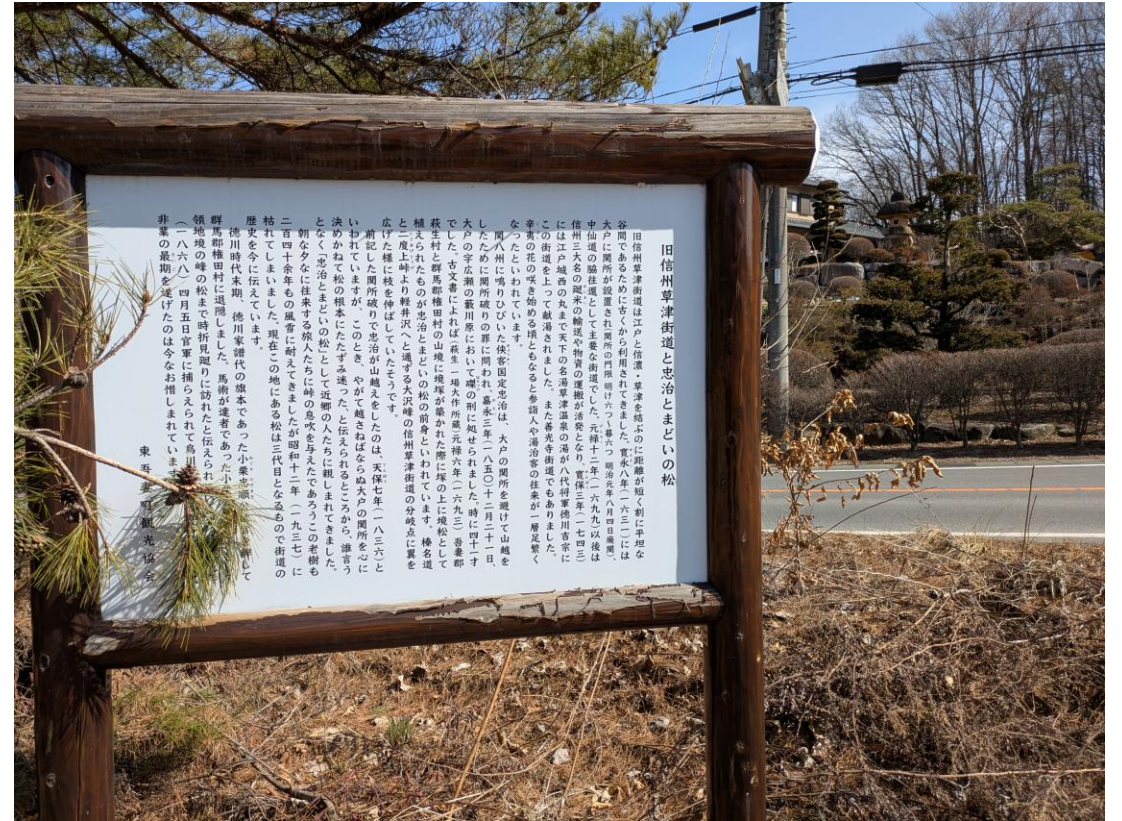 旧信州草津街道と忠治とまどいの松
旧信州草津街道は江戸と信濃・草津を結ぶのに距離が短く割に平坦な
谷間であるために古くから利用されてきました。寛永八年(一六三一)には
大戸に関所が設置され(関所の門限 明け六つ〜暮六つ 明治元年八月四日廃関)、
中仙道の脇往還として主要な街道でした。元禄十二年(一六九九)以後は
信州三大名の廻米の輸送や物資の運搬が活発となり、寛保三年(一七四三)
には江戸城西の丸まで天下の名湯草津温泉の湯が八代将軍徳川吉宗に
この街道を上って献湯されました。また善光寺街道でもありました。
辛夷の花の咲き始める頃ともなると参詣人や湯治客の往来が一層足繁く
なったといわれています。
関八州に鳴りひびいた侠客国定忠治は、大戸の関所を避けて山越を
したために関所破りの罪に問われ、嘉永三年(一八五〇)十二月二十一日、
大戸の字広瀬の藪川原において磔の刑に処せられました。時に四十一才
でした。古文書によれば(萩生 一場大作所蔵)元禄六年(一六九三)吾妻郡
萩生村と群馬郡権田村の山境に境塚が築かれた際に塚の上に境松として
植えられたものが忠治とまどいの松の前身といわれています。榛名道
と二度上峠より軽井沢へと通ずる大沢峰の信州草津街道の分岐点に翼を
広げた様に枝を伸ばしていたそうです。
前記した関所破りで忠治が山越えをしたのは、天保七年(一八三六)と
いわれていますが、このとき、やがて越さねばならぬ大戸の関所を心に
決めかねて松の根本にたたずみ迷った、と伝えられるところから、誰言う
となく「忠治とまどいの松」として近郷の人たちに親しまれてきました。
朝な夕なに往来する旅人たちに峠の息吹を与えたであろうこの老樹も
二百四十余年もの風雪に耐えてきましたが昭和十二年(一九三七)に
枯れてしまいました。現在この地にある松は三代目となるもので街道の
歴史を今に伝えています。
徳川時代末期、徳川家譜代の旗本であった小栗忠順
群馬郡権田村に退隠しました。馬術が達者であった小
領地境の峰の松まで時折見廻りに訪れたと伝えられ
(一八六八)四月五日官軍に捕らえられて烏川
非業の最期を遂げたのは今なお惜しまれていま
東吾 観光協会